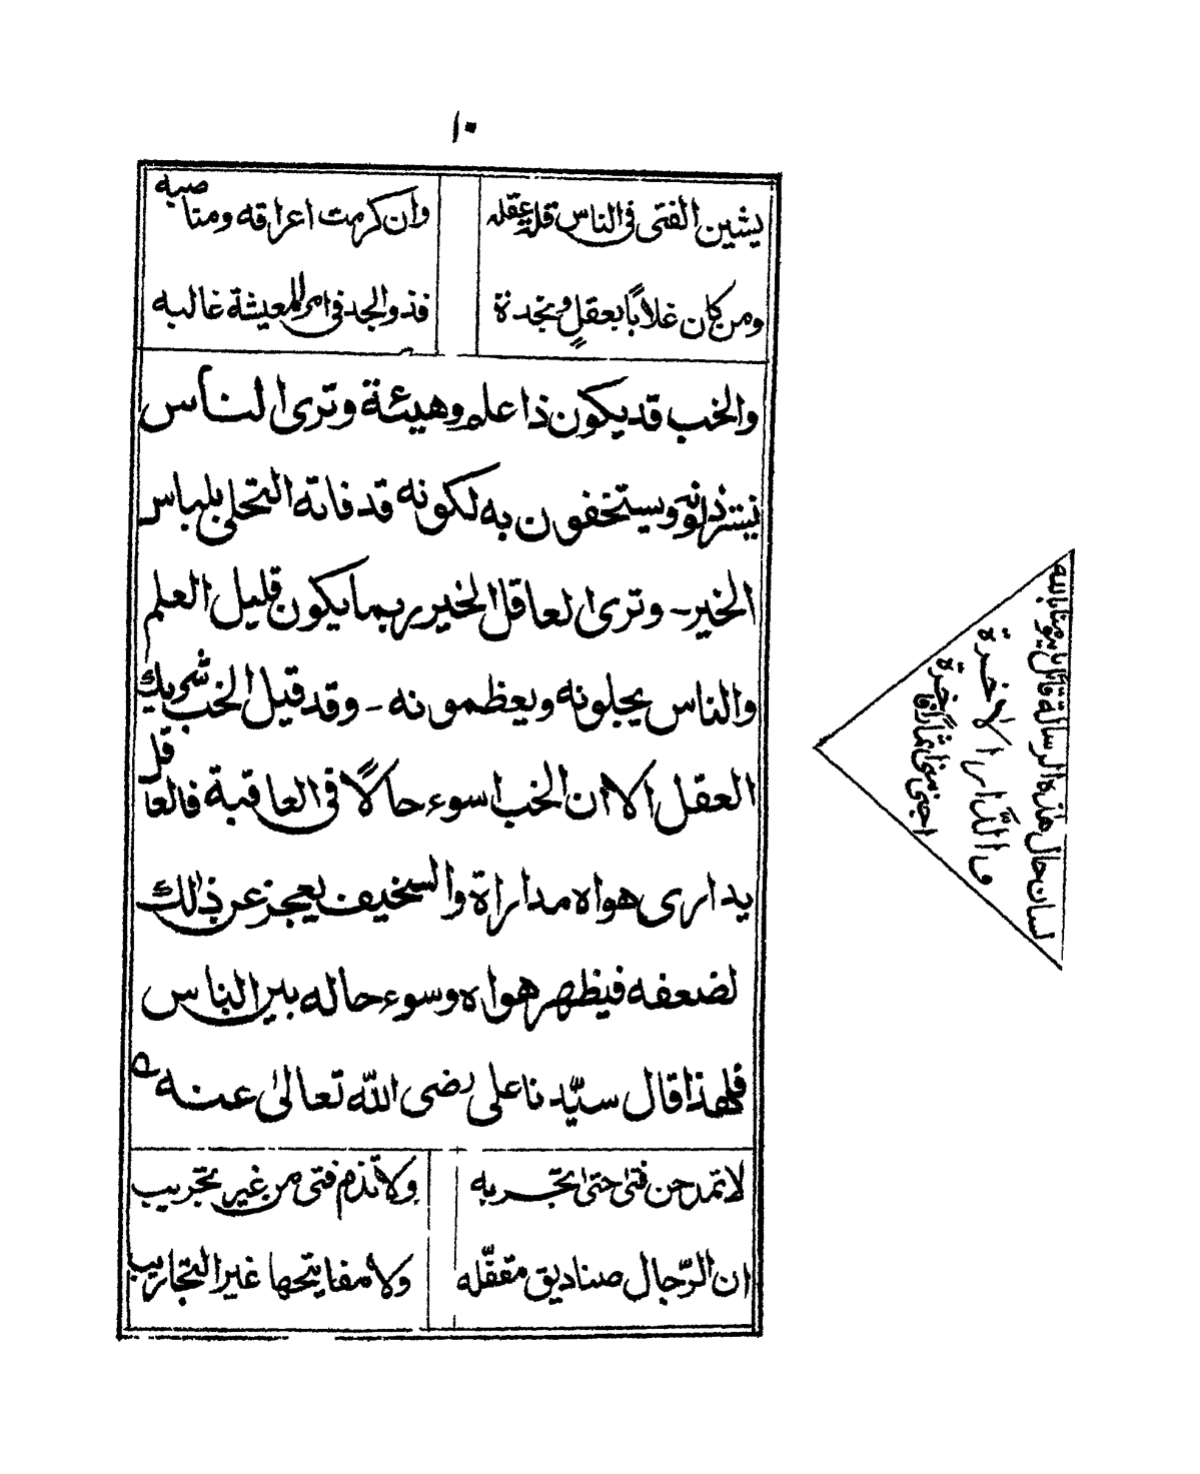 ١٠
يشين الفتى فى الناس قلة عقله وان كرمت اعراقه ومناصبه
ومن كان غلاّبًا بعقلٍ ونجدة فذو الجد فى امر المعيشة غالبه
والخب قد يكون ذا علم وهيئة وترى الناس
يسترذلونه ويستخفون به لكونه قد فاته التحلى بلباس
الخير - وترى العاقل الخير ربما يكون قليل العلم
والناس يجلونه ويعظمونه - وقد قيل الخب شريك
العقل الا ان الخب اسوء حالاً فى العاقبة فالعاقل
يدارى هواه مداراة والسخيف يعجز عن ذٰلك
لضعفه فيظهر هواه وسوء حاله بين الناس
فلهذا قال سيّدنا على رضى اللّٰه تعالىٰ عنه
لا تمدحن فتى حتى تجربه ولا تذم فتى من غير تجريب
ان الرّجال صناديق مقفّله ولا مفاتيحها غير التجاريب
لسان حال هذه الرسالة قائل يا مؤمنا بالله
والدّار الاٰخرة
اجتنى ثمارا